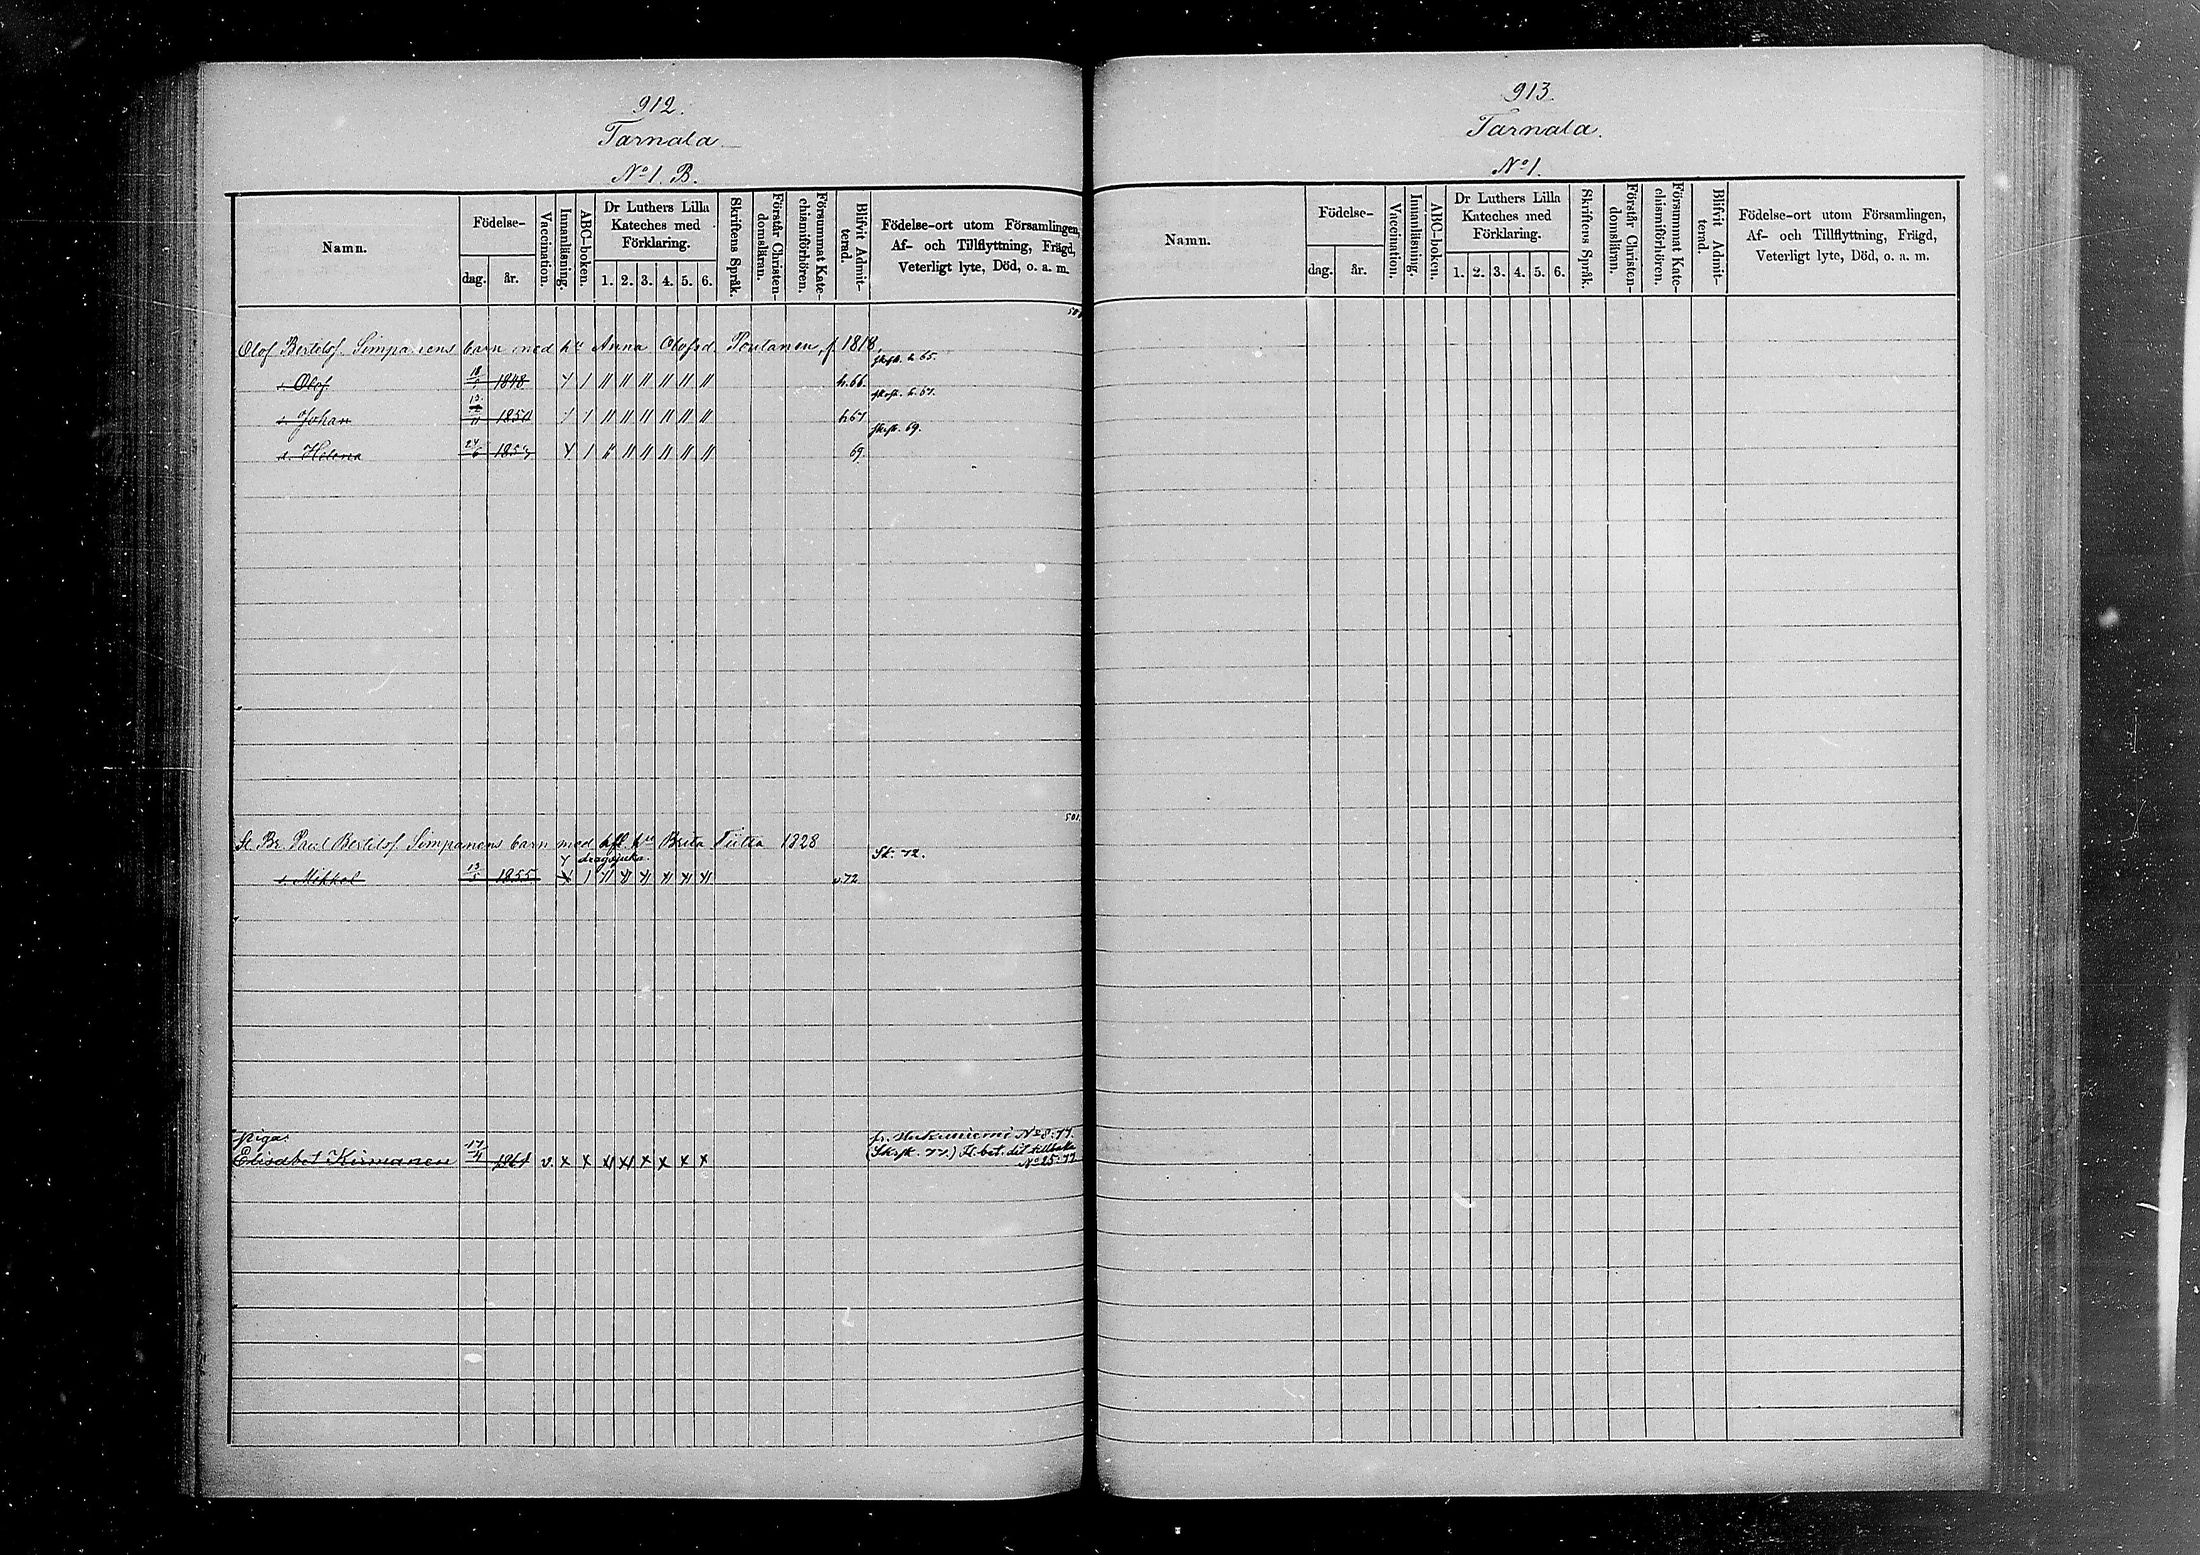 912.
Tarnala
No 1. B.
Namn.
Födelse-
dag.
år.
Vaccination.
Innanläsning.
ABC-boken.
Dr Luthers Lilla
Kateches med
Förklaring.
1. 2. 3. 4. 5. 6.
Skriftens Språk.
Förstår Christen-
domsläran.
Försummat Kate-
chismiförhören.
Blifvit Admit-
terad.
Födelse-ort utom Församlingen,
Af- och Tillflyttning, Frägd,
Veterligt lyte, Död, o. a. m.
Olof Bertelsf. Simpanens barn med hu Anna Olofsd. f. 1818,
s. Olof 1848 h. 66.
s. Johan h 67
d. Helena 24/6 69.
501.
St. Br. Paul Bertelsf. Simpanens barn med hu Brita Tiitta 1828
Sk. 72.
s. Mikkel 13/3 1855 v. 72
piga
fr. No 8: 77.
Elisabet 17/4 1861 v. x x x x x x x x dit tillbaka
No 25: 77
913.
Tarnala.
No 1.
Namn.
Födelse-
dag.
år.
Vaccination.
Innanläsning.
ABC-boken.
Dr Luthers Lilla
Kateches med
Förklaring.
1. 2. 3. 4. 5. 6.
Skriftens Språk.
Förstår Christen-
domsläran.
Försummat Kate-
chismiförhören.
Blifvit Admit-
terad.
Födelse-ort utom Församlingen,
Af- och Tillflyttning, Frägd,
Veterligt lyte, Död, o. a. m.